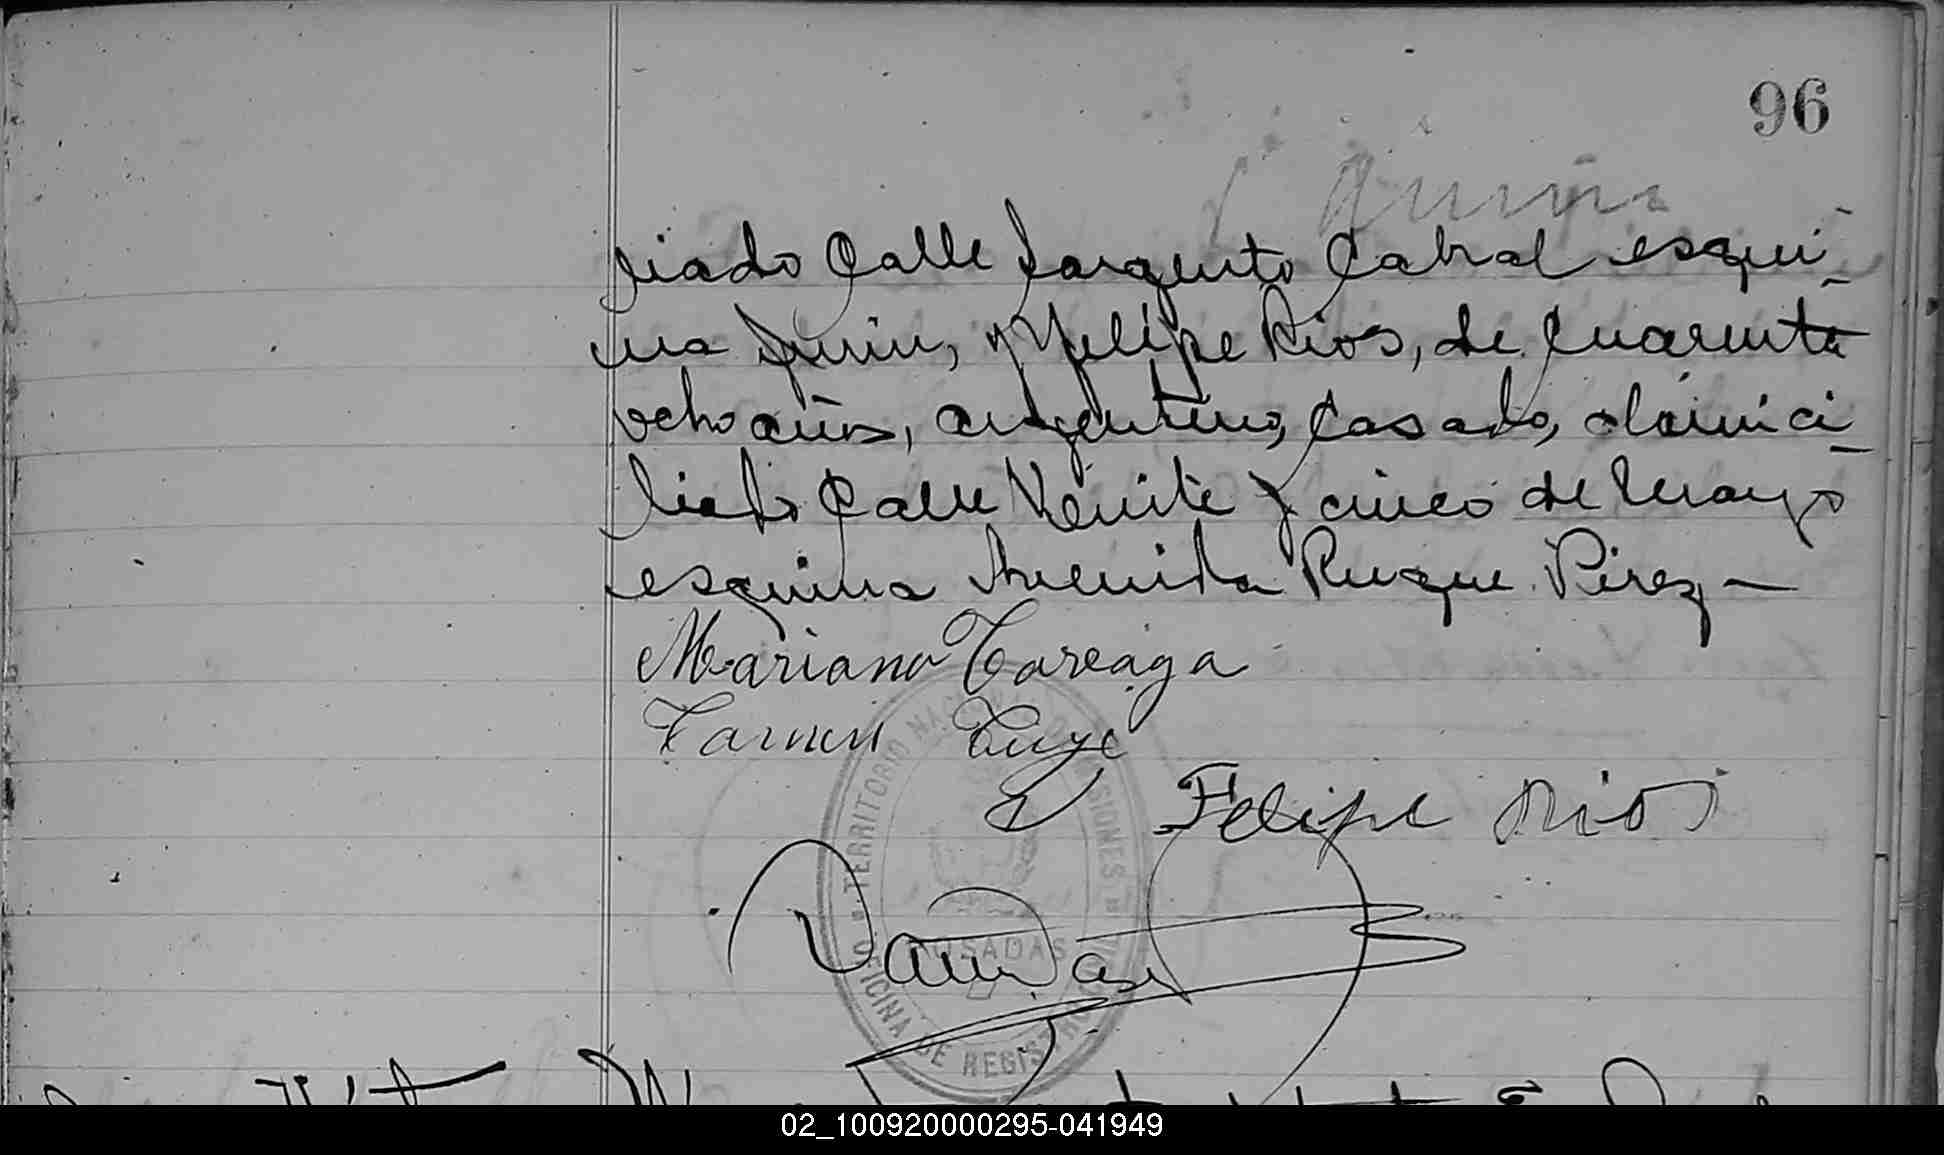 96
liado Calle Sargento Cabral esqui-
na Junin, y Felipe Rios, de cuarenta
ocho años, argentino, casado, domici-
liado Calle Veinte y cinco de Mayo
esquina Avenida Roque Perez —
Mariano Careaga
Carmen
Felipe Rios
TERRITORIO NACIONAL DE MISIONES
POSADAS
OFICINA DE REGISTRO CIVIL
02_100920000295-041949